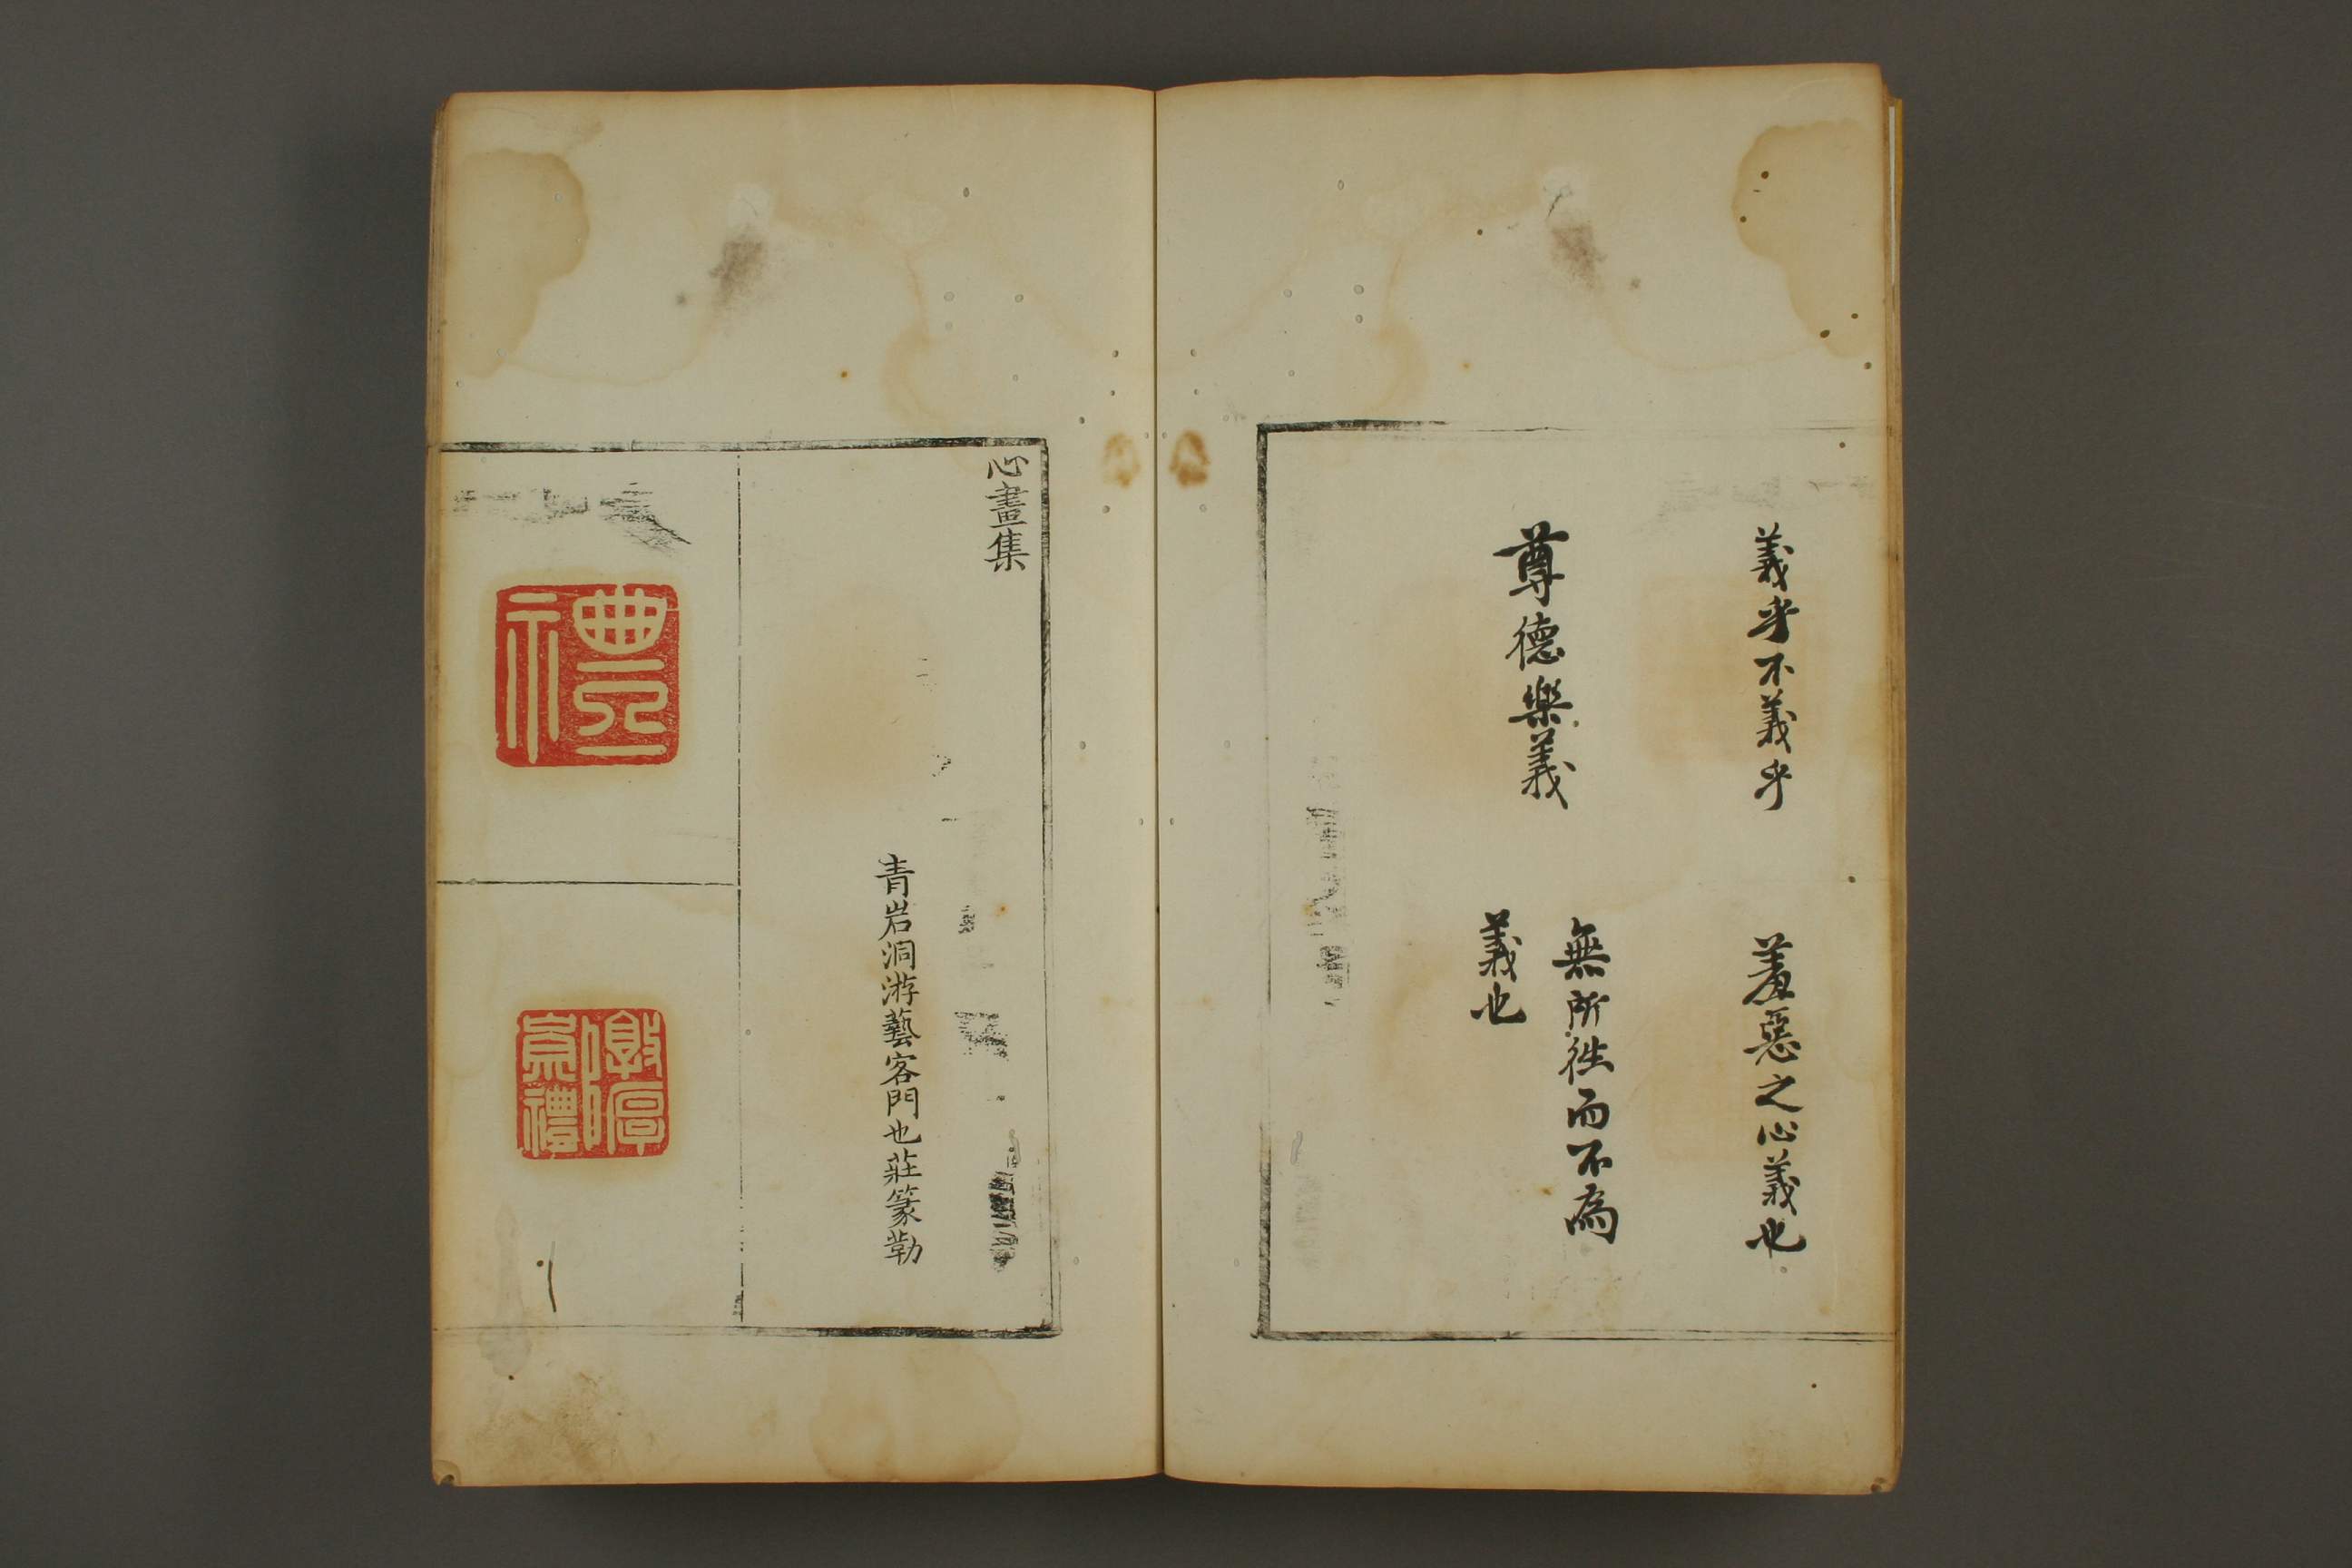 義乎不義乎
羞惡之心義也
尊德樂義
無所徃而不為
義也
心畫集
青岩洞游藝客門也莊篆勒
禮
敦厚以崇禮